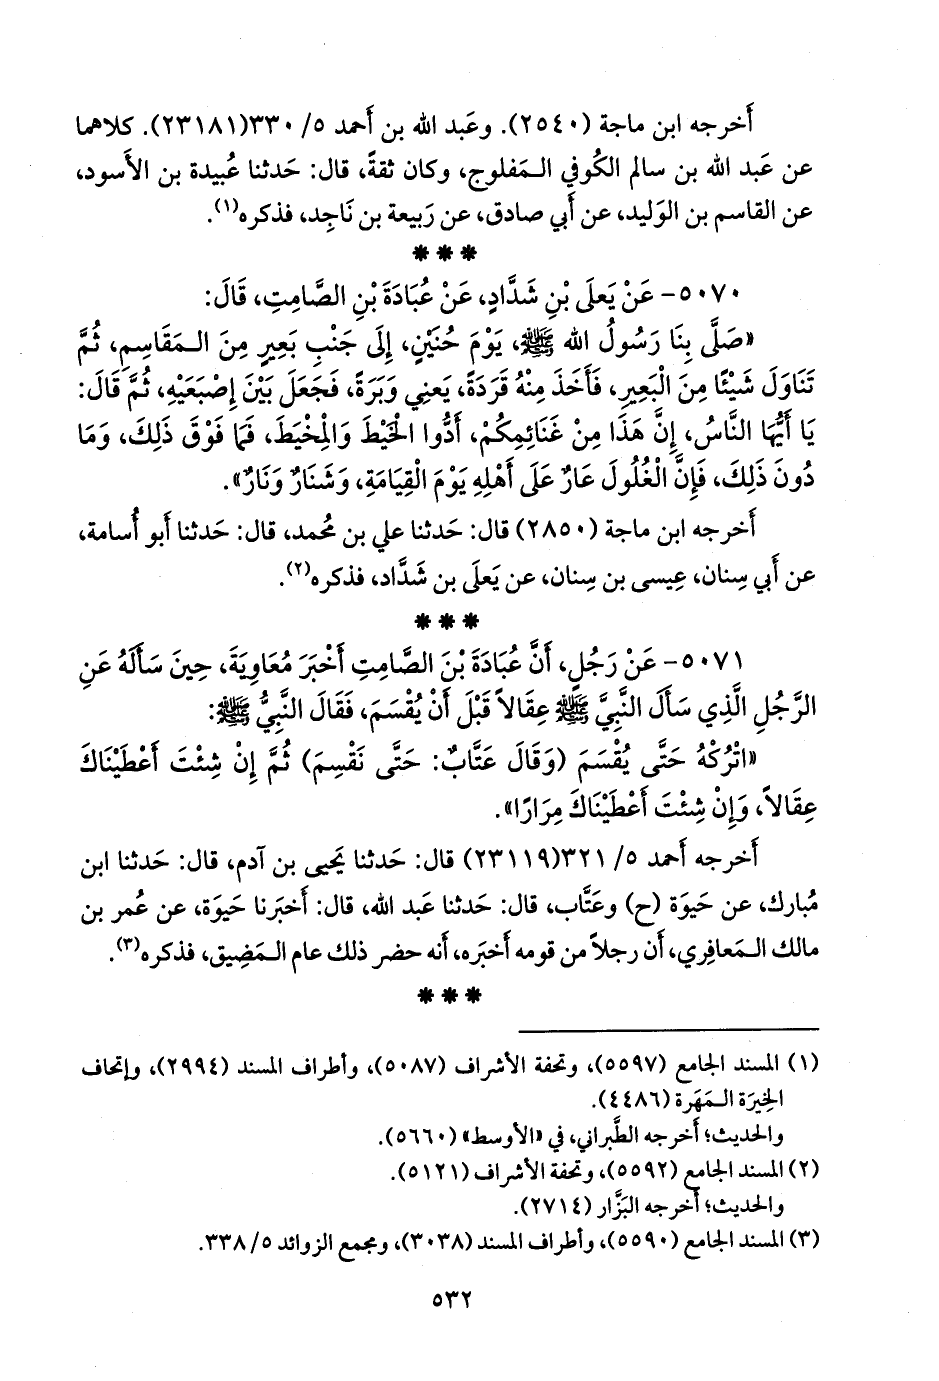 أَخرجه ابن ماجة (٢٥٤٠). وعَبد الله بن أَحمد ٥/ ٣٣٠(٢٣١٨١). كلاهما
عن عَبد الله بن سالم الكُوفي الـمَفلوج، وكان ثقةً، قال: حَدثنا عُبيدة بن الأَسود،
عن القاسم بن الوَليد، عن أَبي صادق، عن رَبيعة بن نَاجِد، فذكره(١).
***
٥٠٧٠- عَنْ يَعلَى بْنِ شَدَّادٍ، عَنْ عُبَادَةَ بْنِ الصَّامِتِ، قَالَ:
«صَلَّى بِنَا رَسُولُ الله ﷺ، يَوْمَ حُنَيْنٍ، إِلَى جَنْبِ بَعِيرٍ مِنَ الـمَقَاسِمِ، ثُمَّ
تَنَاوَلَ شَيْئًا مِنَ الْبَعِيرِ، فَأَخَذَ مِنْهُ قَرَدَةً، يَعنِي وَبَرَةً، فَجَعَلَ بَيْنَ إِصْبَعَيْهِ، ثُمَّ قَالَ:
يَا أَيُّهَا النَّاسُ، إِنَّ هَذَا مِنْ غَنَائِمِكُمْ، أَدُّوا الْخَيْطَ وَالْمِخْيَطَ، فَمَا فَوْقَ ذَلِكَ، وَمَا
دُونَ ذَلِكَ، فَإِنَّ الْغُلُولَ عَارٌ عَلَى أَهْلِهِ يَوْمَ الْقِيَامَةِ، وَشَنَارٌ وَنَارٌ».
أَخرجه ابن ماجة (٢٨٥٠) قال: حَدثنا علي بن مُحمد، قال: حَدثنا أَبو أُسامة،
عن أَبي سِنان، عِيسى بن سِنان، عن يَعلَى بن شَدَّاد، فذكره(٢).
***
٥٠٧١- عَنْ رَجُلٍ، أَنَّ عُبَادَةَ بْنَ الصَّامِتِ أَخْبَرَ مُعَاوِيَةَ، حِينَ سَأَلَهُ عَنِ
الرَّجُلِ الَّذِي سَأَلَ النَّبِيَّ ﷺ عِقَالاً قَبْلَ أَنْ يُقْسَمَ، فَقَالَ النَّبِيُّ ﷺ:
«اتْرُكْهُ حَتَّى يُقْسَمَ (وَقَالَ عَتَّابٌ: حَتَّى نَقْسِمَ) ثُمَّ إِنْ شِئْتَ أَعْطَيْنَاكَ
عِقَالاً، وَإِنْ شِئْتَ أَعْطَيْنَاكَ مِرَارًا».
أَخرجه أَحمد ٥/ ٣٢١(٢٣١١٩) قال: حَدثنا يَحيى بن آدم، قال: حَدثنا ابن
مُبارك، عن حَيوَة (ح) وعَتَّاب، قال: حَدثنا عَبد الله، قال: أَخبَرنا حَيوَة، عن عُمر بن
مالك الـمَعافِري، أَن رجلاً من قومه أَخبَره، أَنه حضر ذلك عام الـمَضِيق، فذكره(٣).
***
(١) المسند الجامع (٥٥٩٧)، وتحفة الأشراف (٥٠٨٧)، وأطراف المسند (٢٩٩٤)، وإتحاف
الخِيرَة الـمَهَرة (٤٤٨٦).
والحديث؛ أَخرجه الطَّبراني، في «الأَوسط» (٥٦٦٠).
(٢) المسند الجامع (٥٥٩٢)، وتحفة الأشراف (٥١٢١).
والحديث؛ أَخرجه البَزَّار (٢٧١٤).
(٣) المسند الجامع (٥٥٩٠)، وأطراف المسند (٣٠٣٨)، ومجمع الزوائد ٥/ ٣٣٨.
٥٣٢